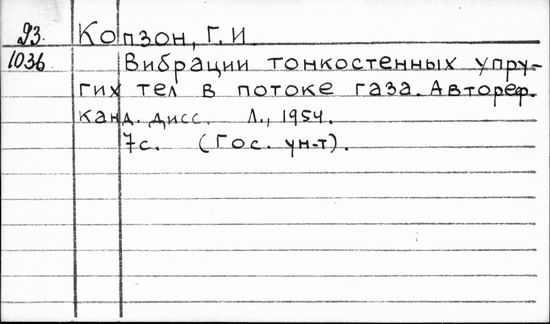 93. Копзон, Г.И.
1036 Вибрации тонкостенных упру-
гих тел в потоке газа. Автореф.
канд. дисс. Л., 1954.
7с. (Гос. ун-т).